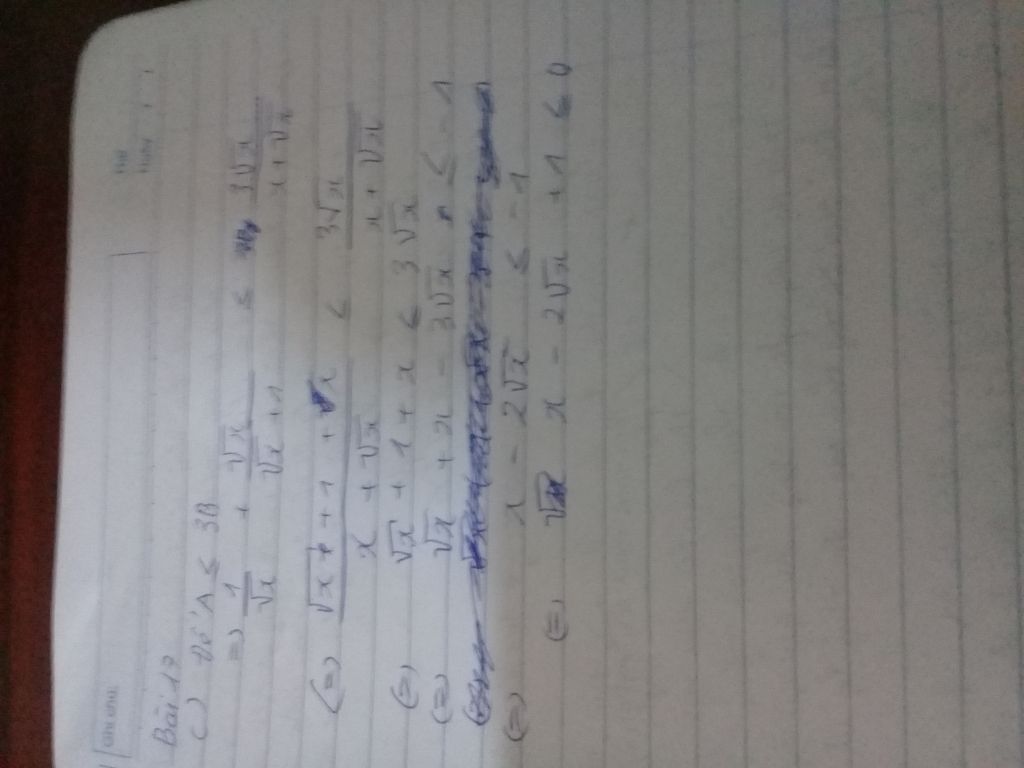 Bài 17
c) Để A ≤ 3B
=) 1/√x + √x/√x+1 ≤ 3√x/x+√x
(=) √x + 1 + x/x + √x ≤ 3√x/x + √x
(=) √x + 1 + x ≤ 3√x
(=) √x + x - 3√x ≤ -1
(=) x - 2√x ≤ -1
(=) x - 2√x + 1 ≤ 0